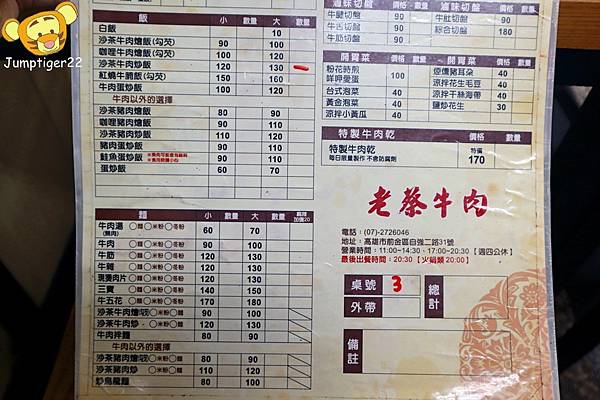 Jumptiger22
飯 小 數量 大 數量
白飯 10
沙茶牛肉燴飯(勾芡) 90 100
咖哩牛肉燴飯(勾芡) 90 100
沙茶牛肉炒飯 120 130
紅燒牛腩飯(勾芡) 150 160
牛肉蛋炒飯 90 100
牛肉以外的選擇
沙茶豬肉燴飯 80 90
咖哩豬肉燴飯 90 110
沙茶豬肉炒飯 110 120
豬肉蛋炒飯 90 110
鮭魚蛋炒飯 90 110
蛋炒飯 60 70
滷味切盤 滷味切盤
牛腱切盤 牛肚切盤 90
牛舌切盤 綜合切盤 180
牛筋切盤
開胃菜 價格 數量 開胃菜 價格 數量
粉花時煎 100
鉀呷愛蛋
台式泡菜 40
黃金泡菜 40
涼拌小黃瓜 40
煙燻豬耳朵 40
涼拌花生毛豆 40
涼拌干絲海帶 40
鹽炒花生 30
特製牛肉乾 價格 數量
特製牛肉乾 特價 170
每日限量製作 不含防腐劑
老蔡牛肉
電話：(07)-2726046
地址：高雄市前金區自強二路31號
營業時間：11:00~14:30、17:00~20:30【週四公休】
最後出餐時間：20:30【火鍋類20:00】
桌號 3 總計
外帶
備註
麵 小 數量 大 數量 麻辣加價20
牛肉湯 ○麵 ○米粉 ○冬粉 60 70
牛肉 ○麵 ○米粉 ○冬粉 90 100
牛筋 ○麵 ○米粉 ○冬粉 120 130
牛雜 ○麵 ○米粉 ○冬粉 110 120
現燙肉片 ○麵 ○米粉 ○冬粉 120 130
三寶 ○麵 ○米粉 ○冬粉 140 150
牛五花 ○麵 ○米粉 ○冬粉 170 180
沙茶牛肉燴/炒 ○米粉 ○麵 90 100
沙茶牛肉炒 ○米粉 ○麵 120 130
牛肉拌麵 80 90
牛肉以外的選擇
沙茶豬肉燴/炒 ○米粉 ○麵 80 90
沙茶豬肉炒 ○米粉 ○麵 110 120
炒烏龍麵 80 100